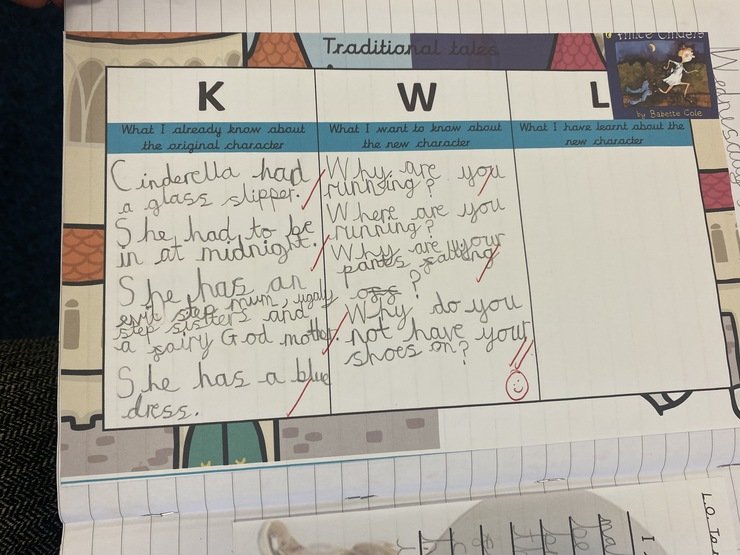 Traditional tales
Prince Cinders
by Babette Cole
Wednesday
K
What I already know about
the original character
Cinderella had
a glass slipper.
She had to be
in at midnight.
She has an
evil step mum, ugaly
step sistters and
a fairy God mother.
She has a blue
dress.
W
What I want to know about
the new character
Why are you
running?
Where are you
running?
Why are your
pants falling
?
Why do you
not have your
shoes on?
L
What I have learnt about the
new character
L.O. To